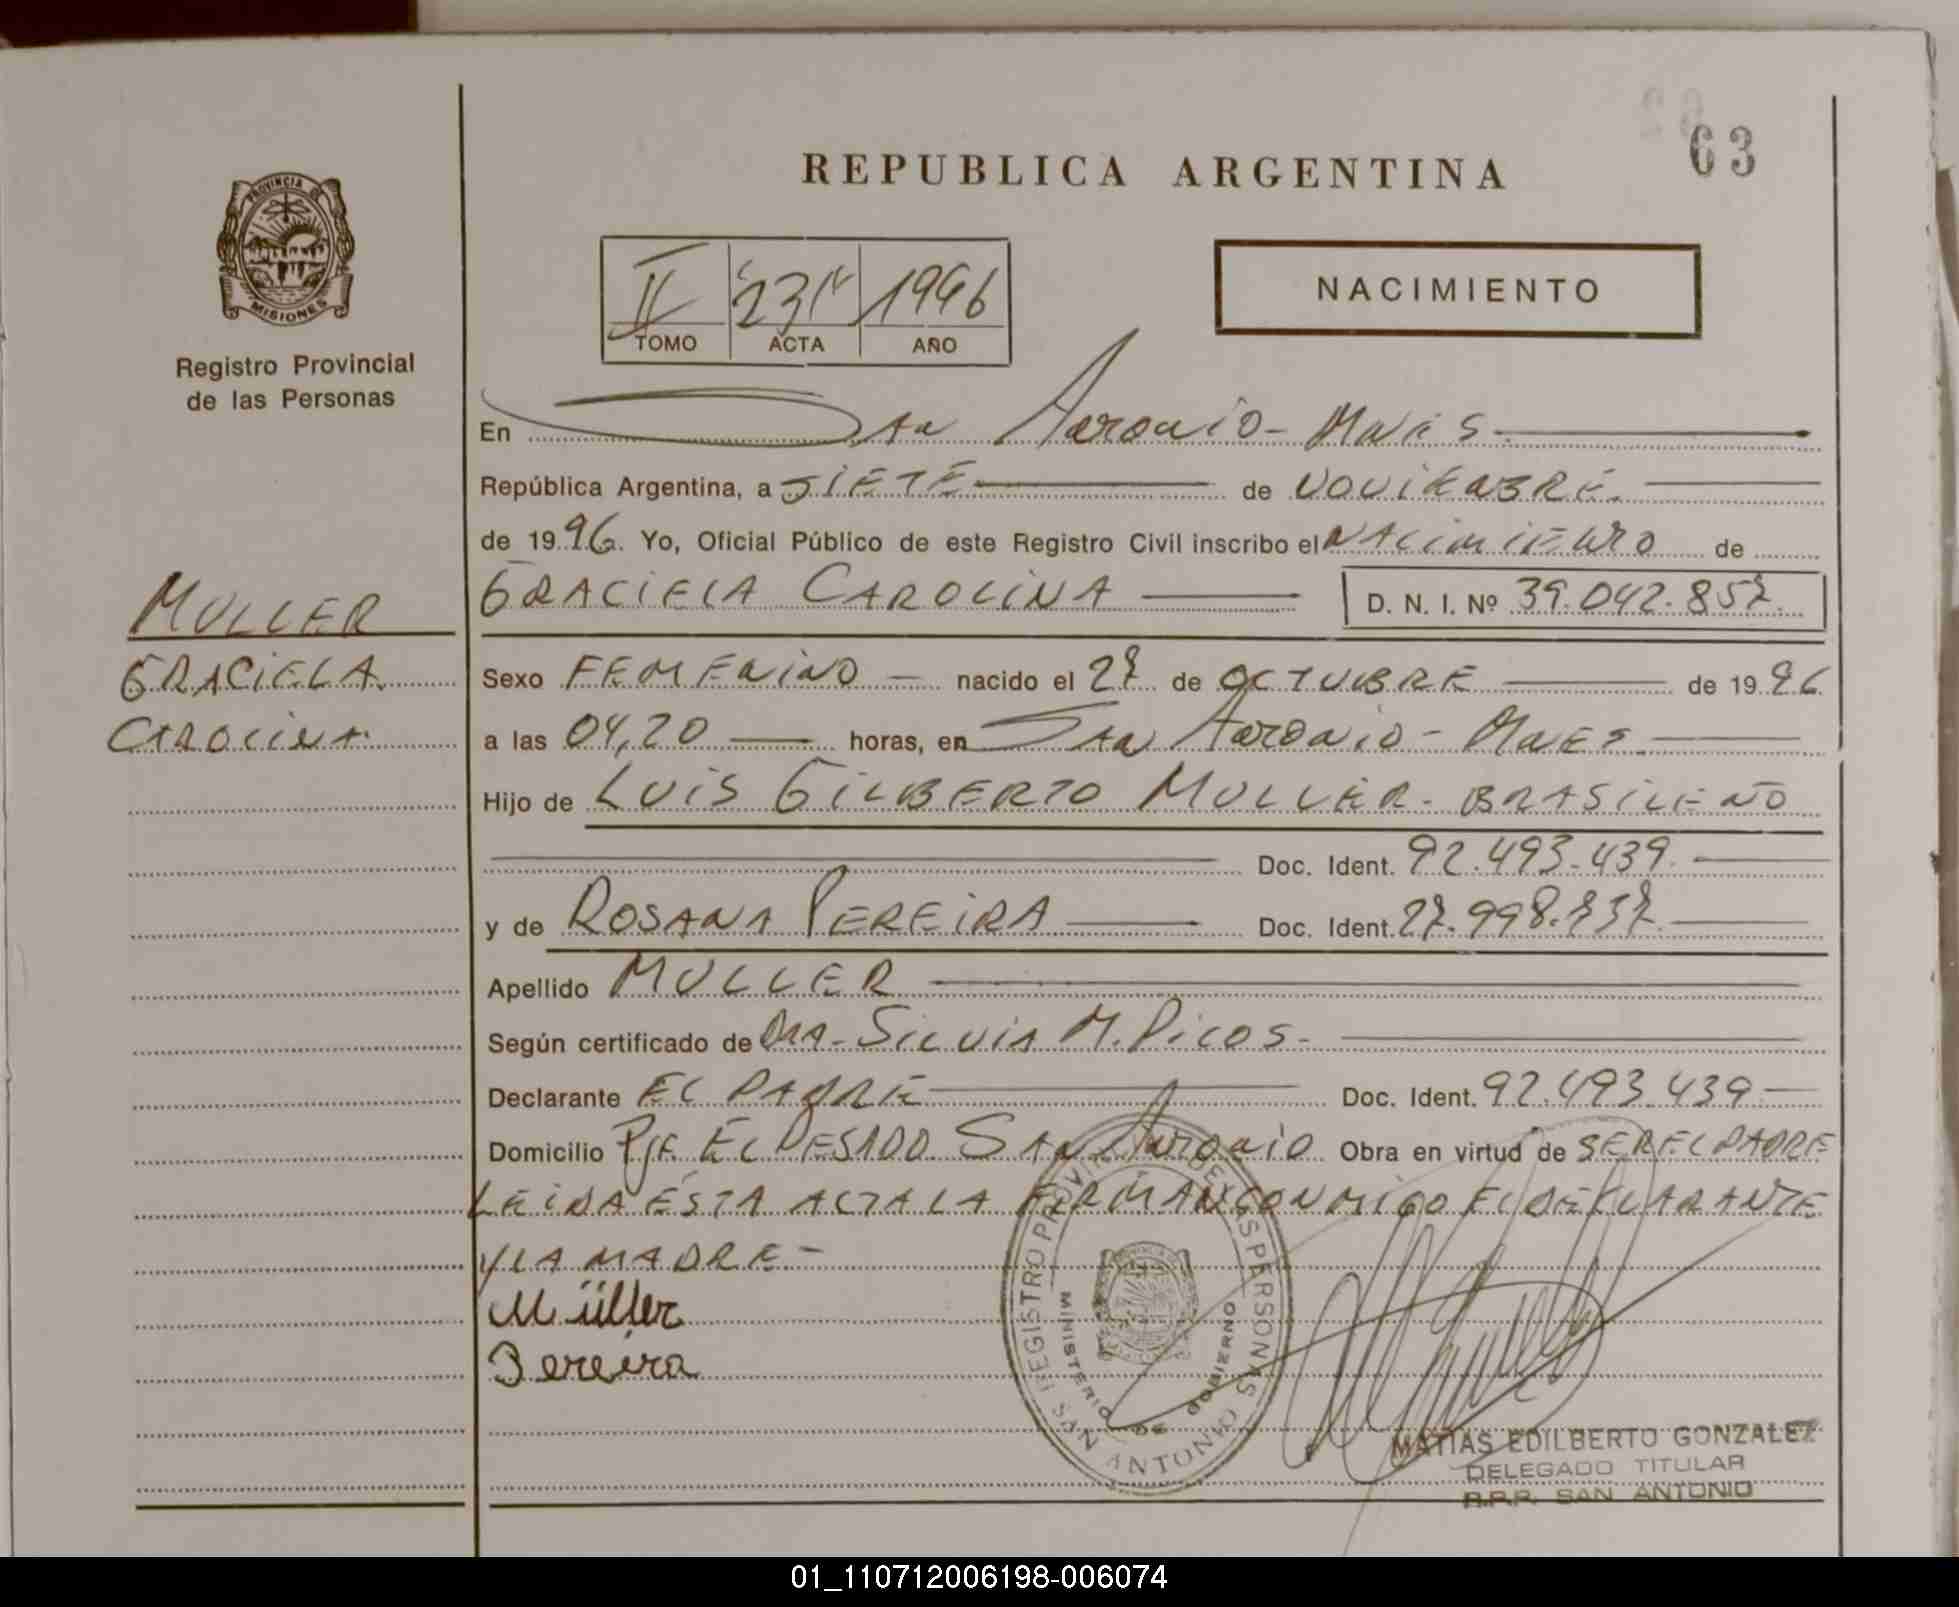 63
REPUBLICA ARGENTINA
PROVINCIA DE
MISIONES
Registro Provincial
de las Personas
II 1996
TOMO ACTA AÑO
NACIMIENTO
En San Antonio - Mnes
República Argentina, a SIETE de NOVIEMBRE.
de 1996. Yo, Oficial Público de este Registro Civil inscribo el NACIMIENTO de
MULLER
GRACIELA CAROLINA D. N. I. Nº 39.042.857.
GRACIELA
CAROLINA
Sexo FEMENINO - nacido el 27 de OCTUBRE de 1996
a las 04,20 horas, en San Antonio - Mnes
Hijo de LUIS GILBERTO MULLER - BRASILEÑO
Doc. Ident. 92.493.439.
y de ROSANA PEREIRA Doc. Ident. 27.998.737.
Apellido MULLER
Según certificado de Dra. SILVIA M. PICOS -
Declarante EL PADRE Doc. Ident. 92.493.439
Domicilio Pje. EL PESADO SAN ANTONIO Obra en virtud de SER EL PADRE
LEIDA ESTA ACTA LA FIRMAN CONMIGO EL DECLARANTE
Y LA MADRE -
Müller
Pereira
REGISTRO PROVINCIAL DE LAS PERSONAS
MINISTERIO DE GOBIERNO
SAN ANTONIO
MATIAS EDILBERTO GONZALEZ
DELEGADO TITULAR
R.P.P. SAN ANTONIO
01_110712006198-006074